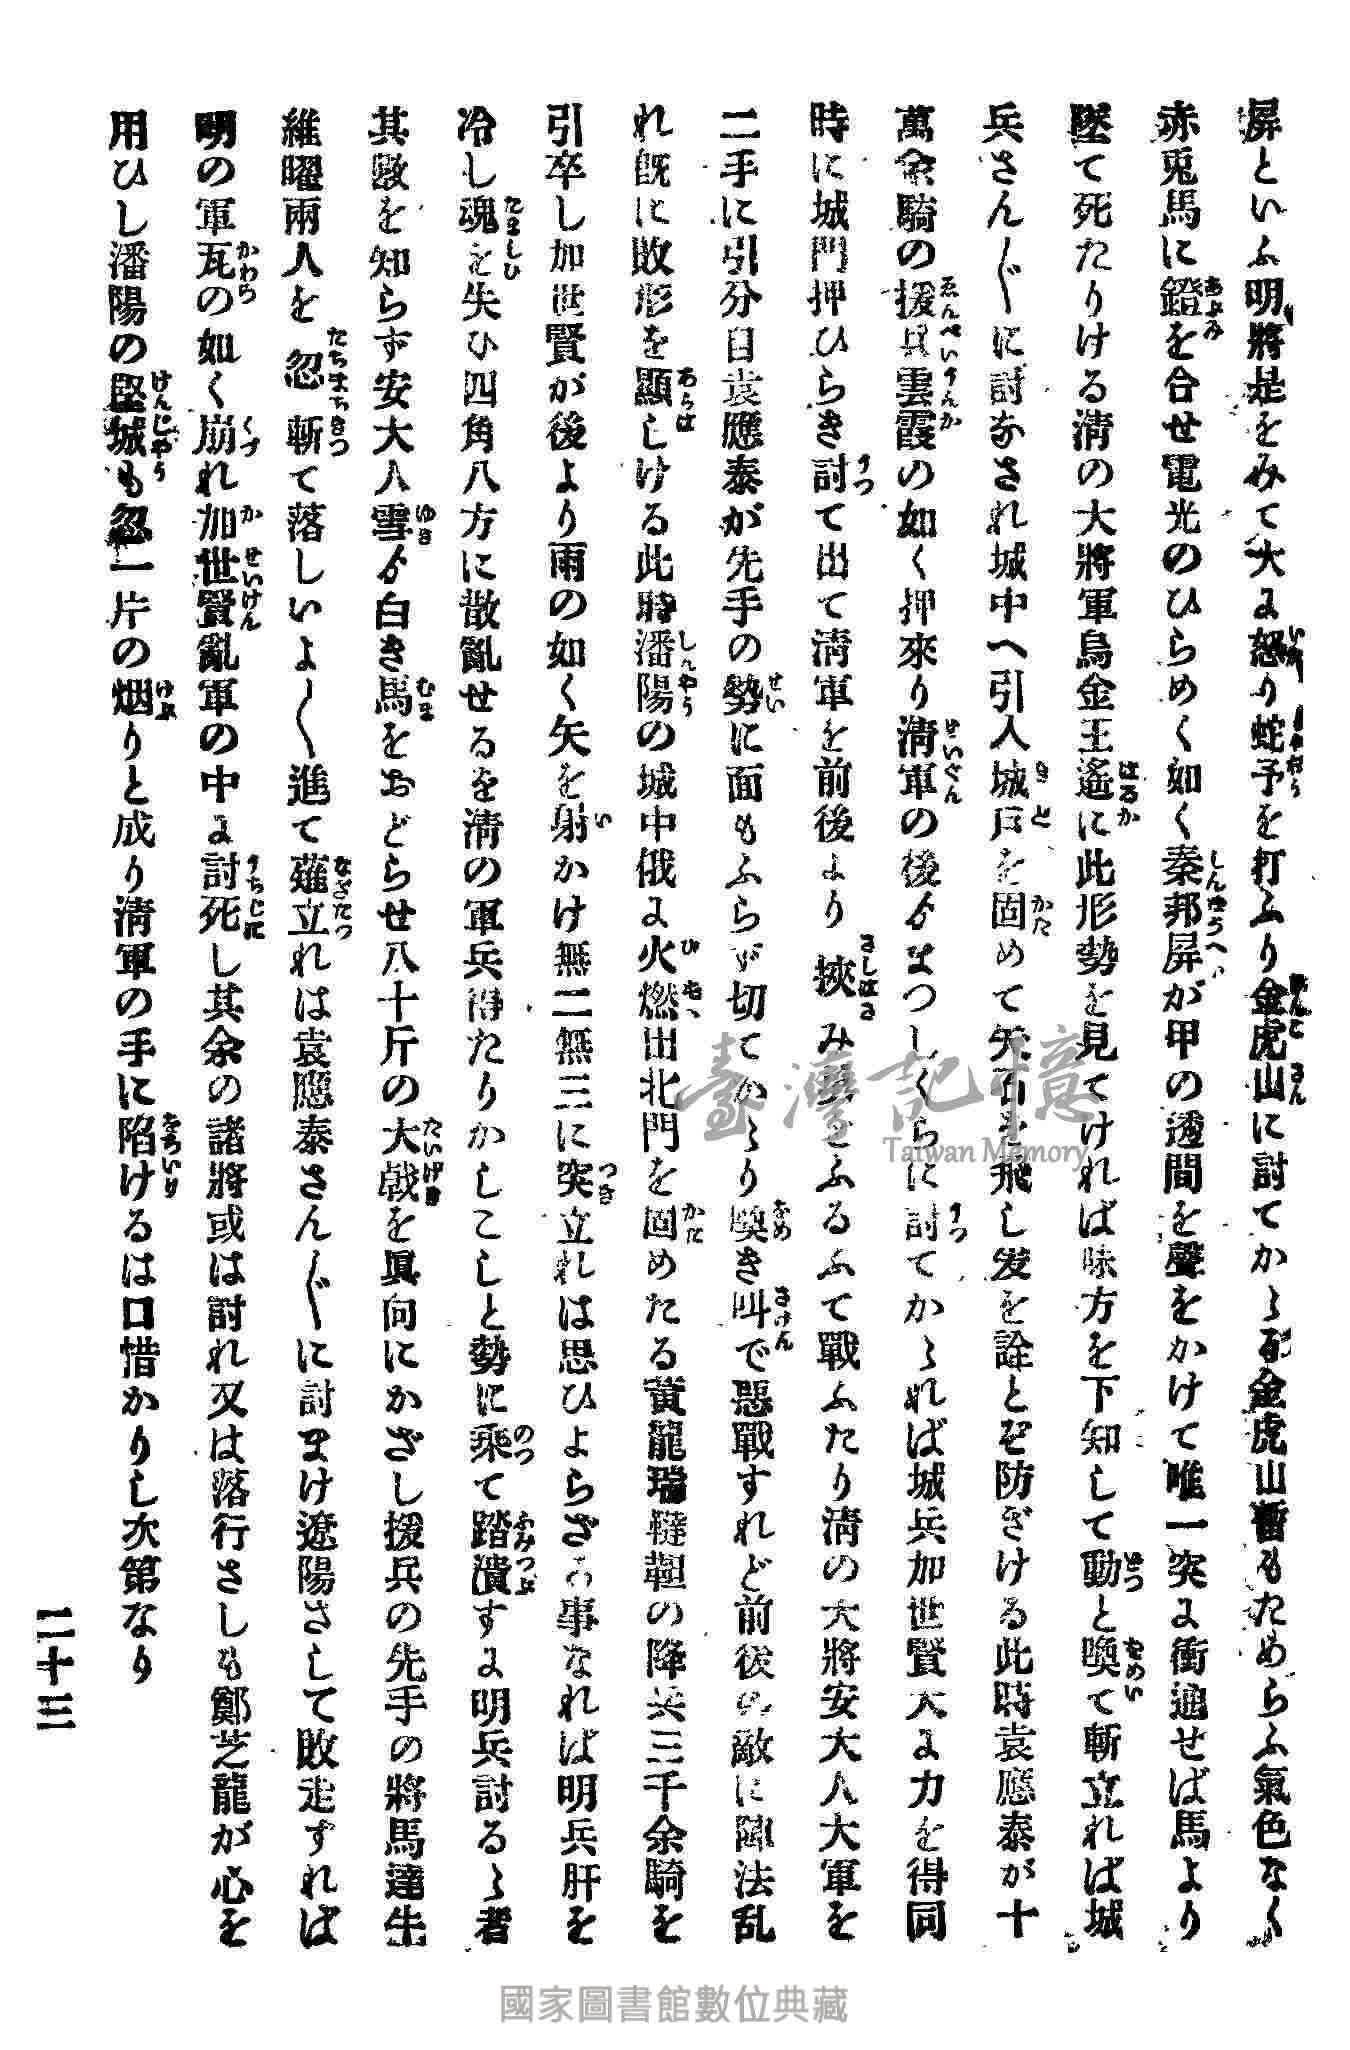 屏といふ明將是をみて大に怒り蛇矛を打ふり金虎山に討てかゝる金虎山暫もためらふ氣色なく
赤兎馬に鐙を合せ電光のひらめく如く秦邦屏が甲の透間を聲をかけて唯一突に衝通せば馬より
墜て死たりける淸の大將軍烏金王遙に此形勢を見てければ味方を下知して動と喚て斬立れば城
兵さん〴〵に討なされ城中へ引入城戸を固めて矢石を飛し发を詮とぞ防ぎける此時袁應泰が十
萬余騎の援兵雲霞の如く押來り淸軍の後よりまつしくらに討てかゝれば城兵加世賢大に力を得同
時に城門押ひらき討て出て淸軍を前後より挾みをふるふて戰ふたり淸の大將安大人大軍を
二手に引分自袁應泰が先手の勢に面もふらず切てかゝり喚き叫で惡戰すれど前後の敵に陣法乱
れ既に敗形を顯しける此時瀋陽の城中俄に火燃出北門を固めたる黃龍瑞韃靼の降兵三千余騎を
引卒し加世賢が後より雨の如く矢を射かけ無二無三に突立れは思ひよらざる事なれば明兵肝を
冷し魂を失ひ四角八方に散亂せるを淸の軍兵得たりかしこしと勢に乘て踏潰すに明兵討るゝ者
其數を知らず安大人雪より白き馬をおどらせ八十斤の大戟を眞向にかざし援兵の先手の將馬達生
維曜兩人を忽斬て落しいよ〳〵進て薙立れは袁應泰さん〴〵に討まけ遼陽さして敗走すれば
明の軍瓦の如く崩れ加世賢亂軍の中に討死し其余の諸將或は討れ又は落行さしも鄭芝龍が心を
用ひし瀋陽の堅城も忽一片の烟りと成り淸軍の手に陷けるは口惜かりし次第なり
二十三
臺灣記憶
Taiwan Memory
國家圖書館數位典藏